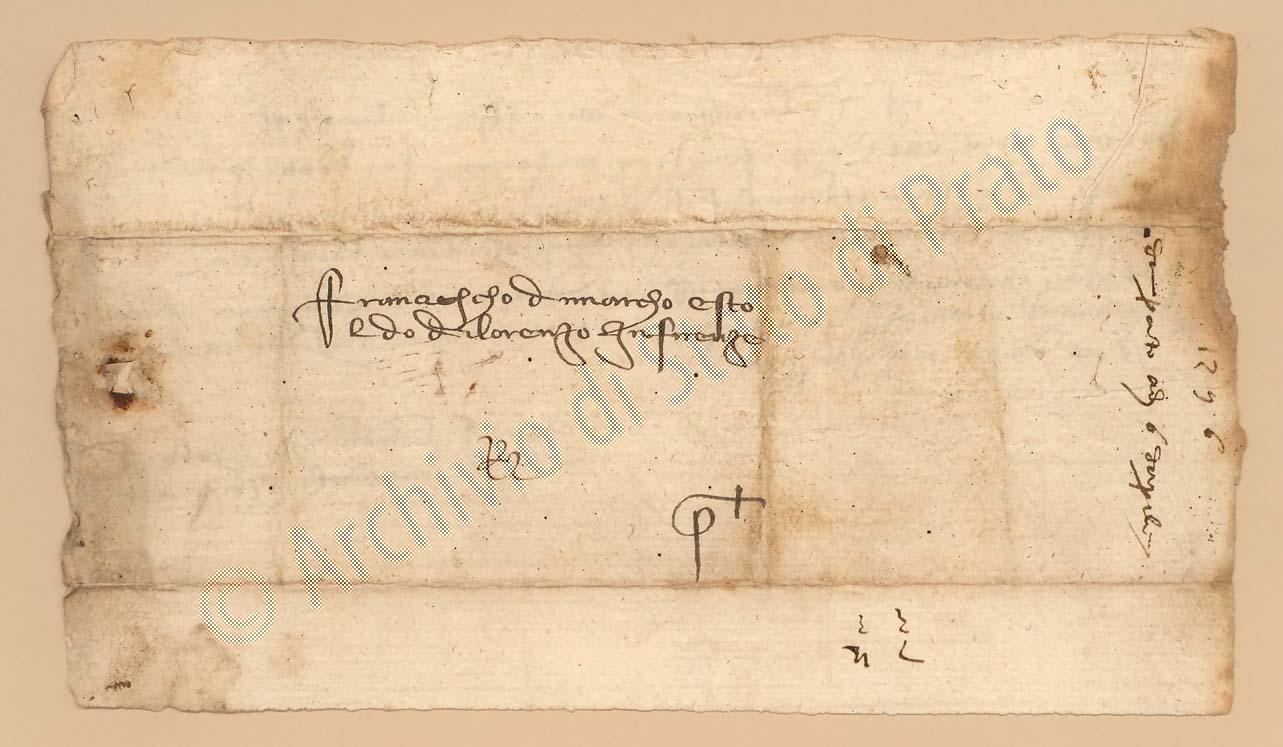 Franciescho d marcho e sto
ldo di lorenzo in firenze
p
1396
da prato adì 6
© Archivio di Stato di Prato